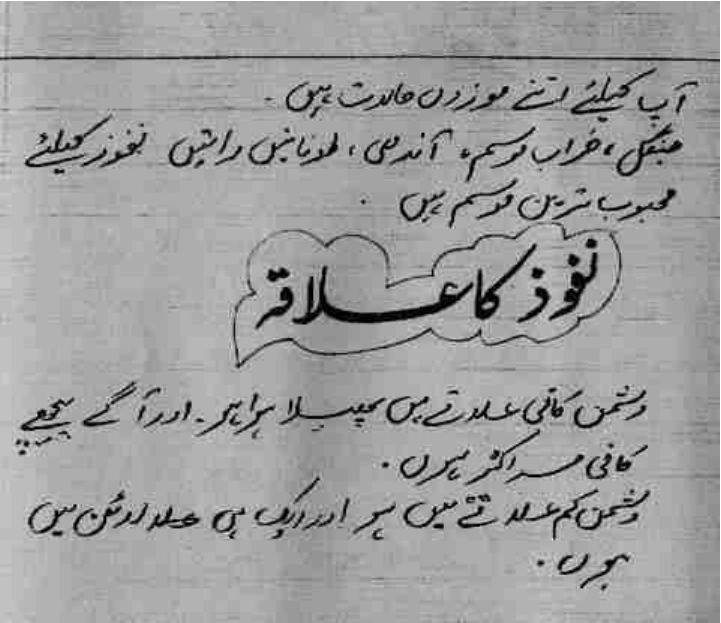 آپ کیلئے اتنے موزوں حالات ہیں۔
جنگل، خراب موسم، آندھی، طوفانیں راتیں نفوذ کیلئے
محبوب ترین موسم ہیں۔
نفوذ کا علاقہ
دشمن کافی علاقے میں پھیلا ہوا ہو۔ اور آگے پیچھے
کافی مراکز ہوں۔
دشمن کم علاقے میں ہو اور ایک ہی علاقے میں
ہوں۔